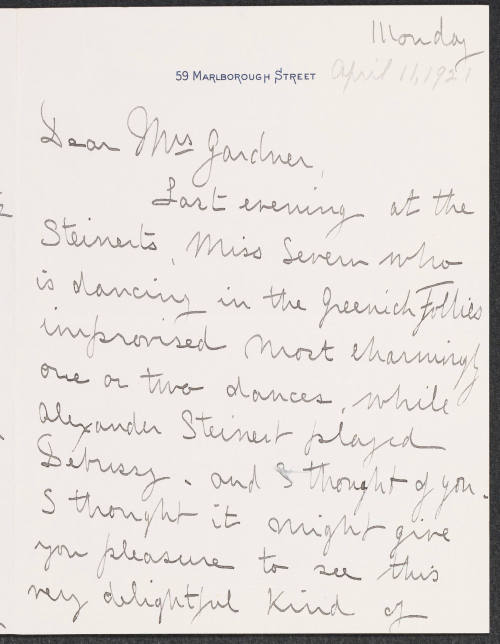 Monday
April 11, 1921
59 MARLBOROUGH STREET
Dear Mrs Gardner,
Last evening at the
Steinerts, Miss Severn who
is dancing in the Greenich Follies
improvised most charmingly
one or two dances, while
Alexander Steinert played
Debussy. and I thought of you.
I thought it might give
you pleasure to see this
very delightful kind of